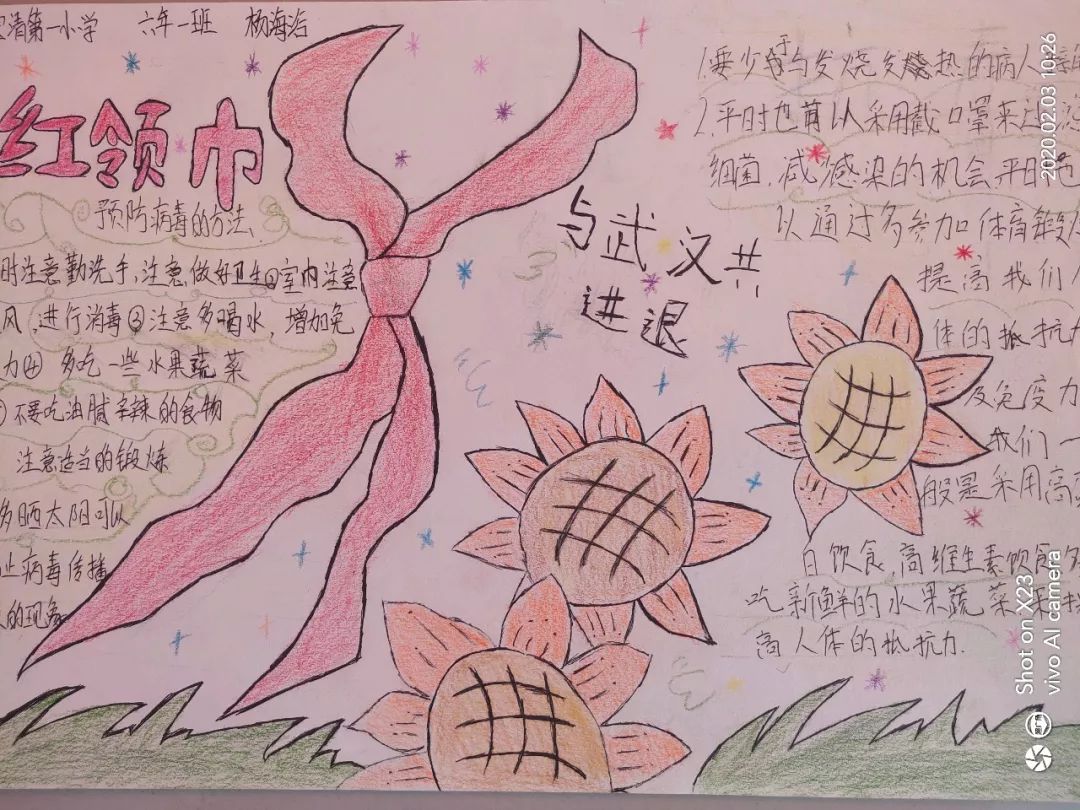 清第一小学 六年一班 杨海
红领巾
预防病毒的方法
时注意勤洗手,注意做好卫生②室内注意
风,进行消毒③注意多喝水,增加免
力④ 多吃一些水果蔬菜
不要吃油腻辛辣的食物
注意适当的锻炼
多晒太阳可以
止病毒传播
的现象
与武汉共
进退
1.要少于与发烧发热的病人
2.平时也可以采用戴口罩来
细菌,减少感染的机会,平时也
以通过多参加体育锻
提高我们
体的抵抗力
及免疫力
我们一
般是采用高
白饮食,高维生素饮食多
吃新鲜的水果蔬菜来
高人体的抵抗力.
2020.02.03 10:26
Shot on X23
vivo AI camera